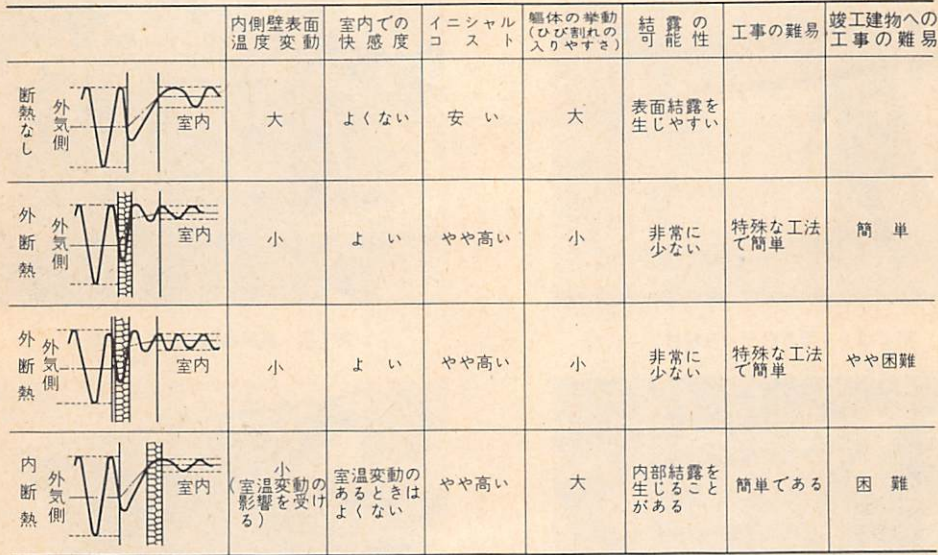 内側壁表面
温度変動
室内での
快感度
イニシャル
コスト
軀体の挙動
(ひび割れの
入りやすさ)
結露の
可能性
工事の難易
竣工建物への
工事の難易
断熱なし
外気側
室内
大
よくない
安い
大
表面結露を
生じやすい
外断熱
外気側
室内
小
よい
やや高い
小
非常に
少ない
特殊な工法
で簡単
簡単
外断熱
外気側
室内
小
よい
やや高い
小
非常に
少ない
特殊な工法
で簡単
やや困難
内断熱
外気側
室内
小
(室温変動の
影響を受け
る)
室温変動の
あるときは
よくない
やや高い
大
内部結露を
生じること
がある
簡単である
困難